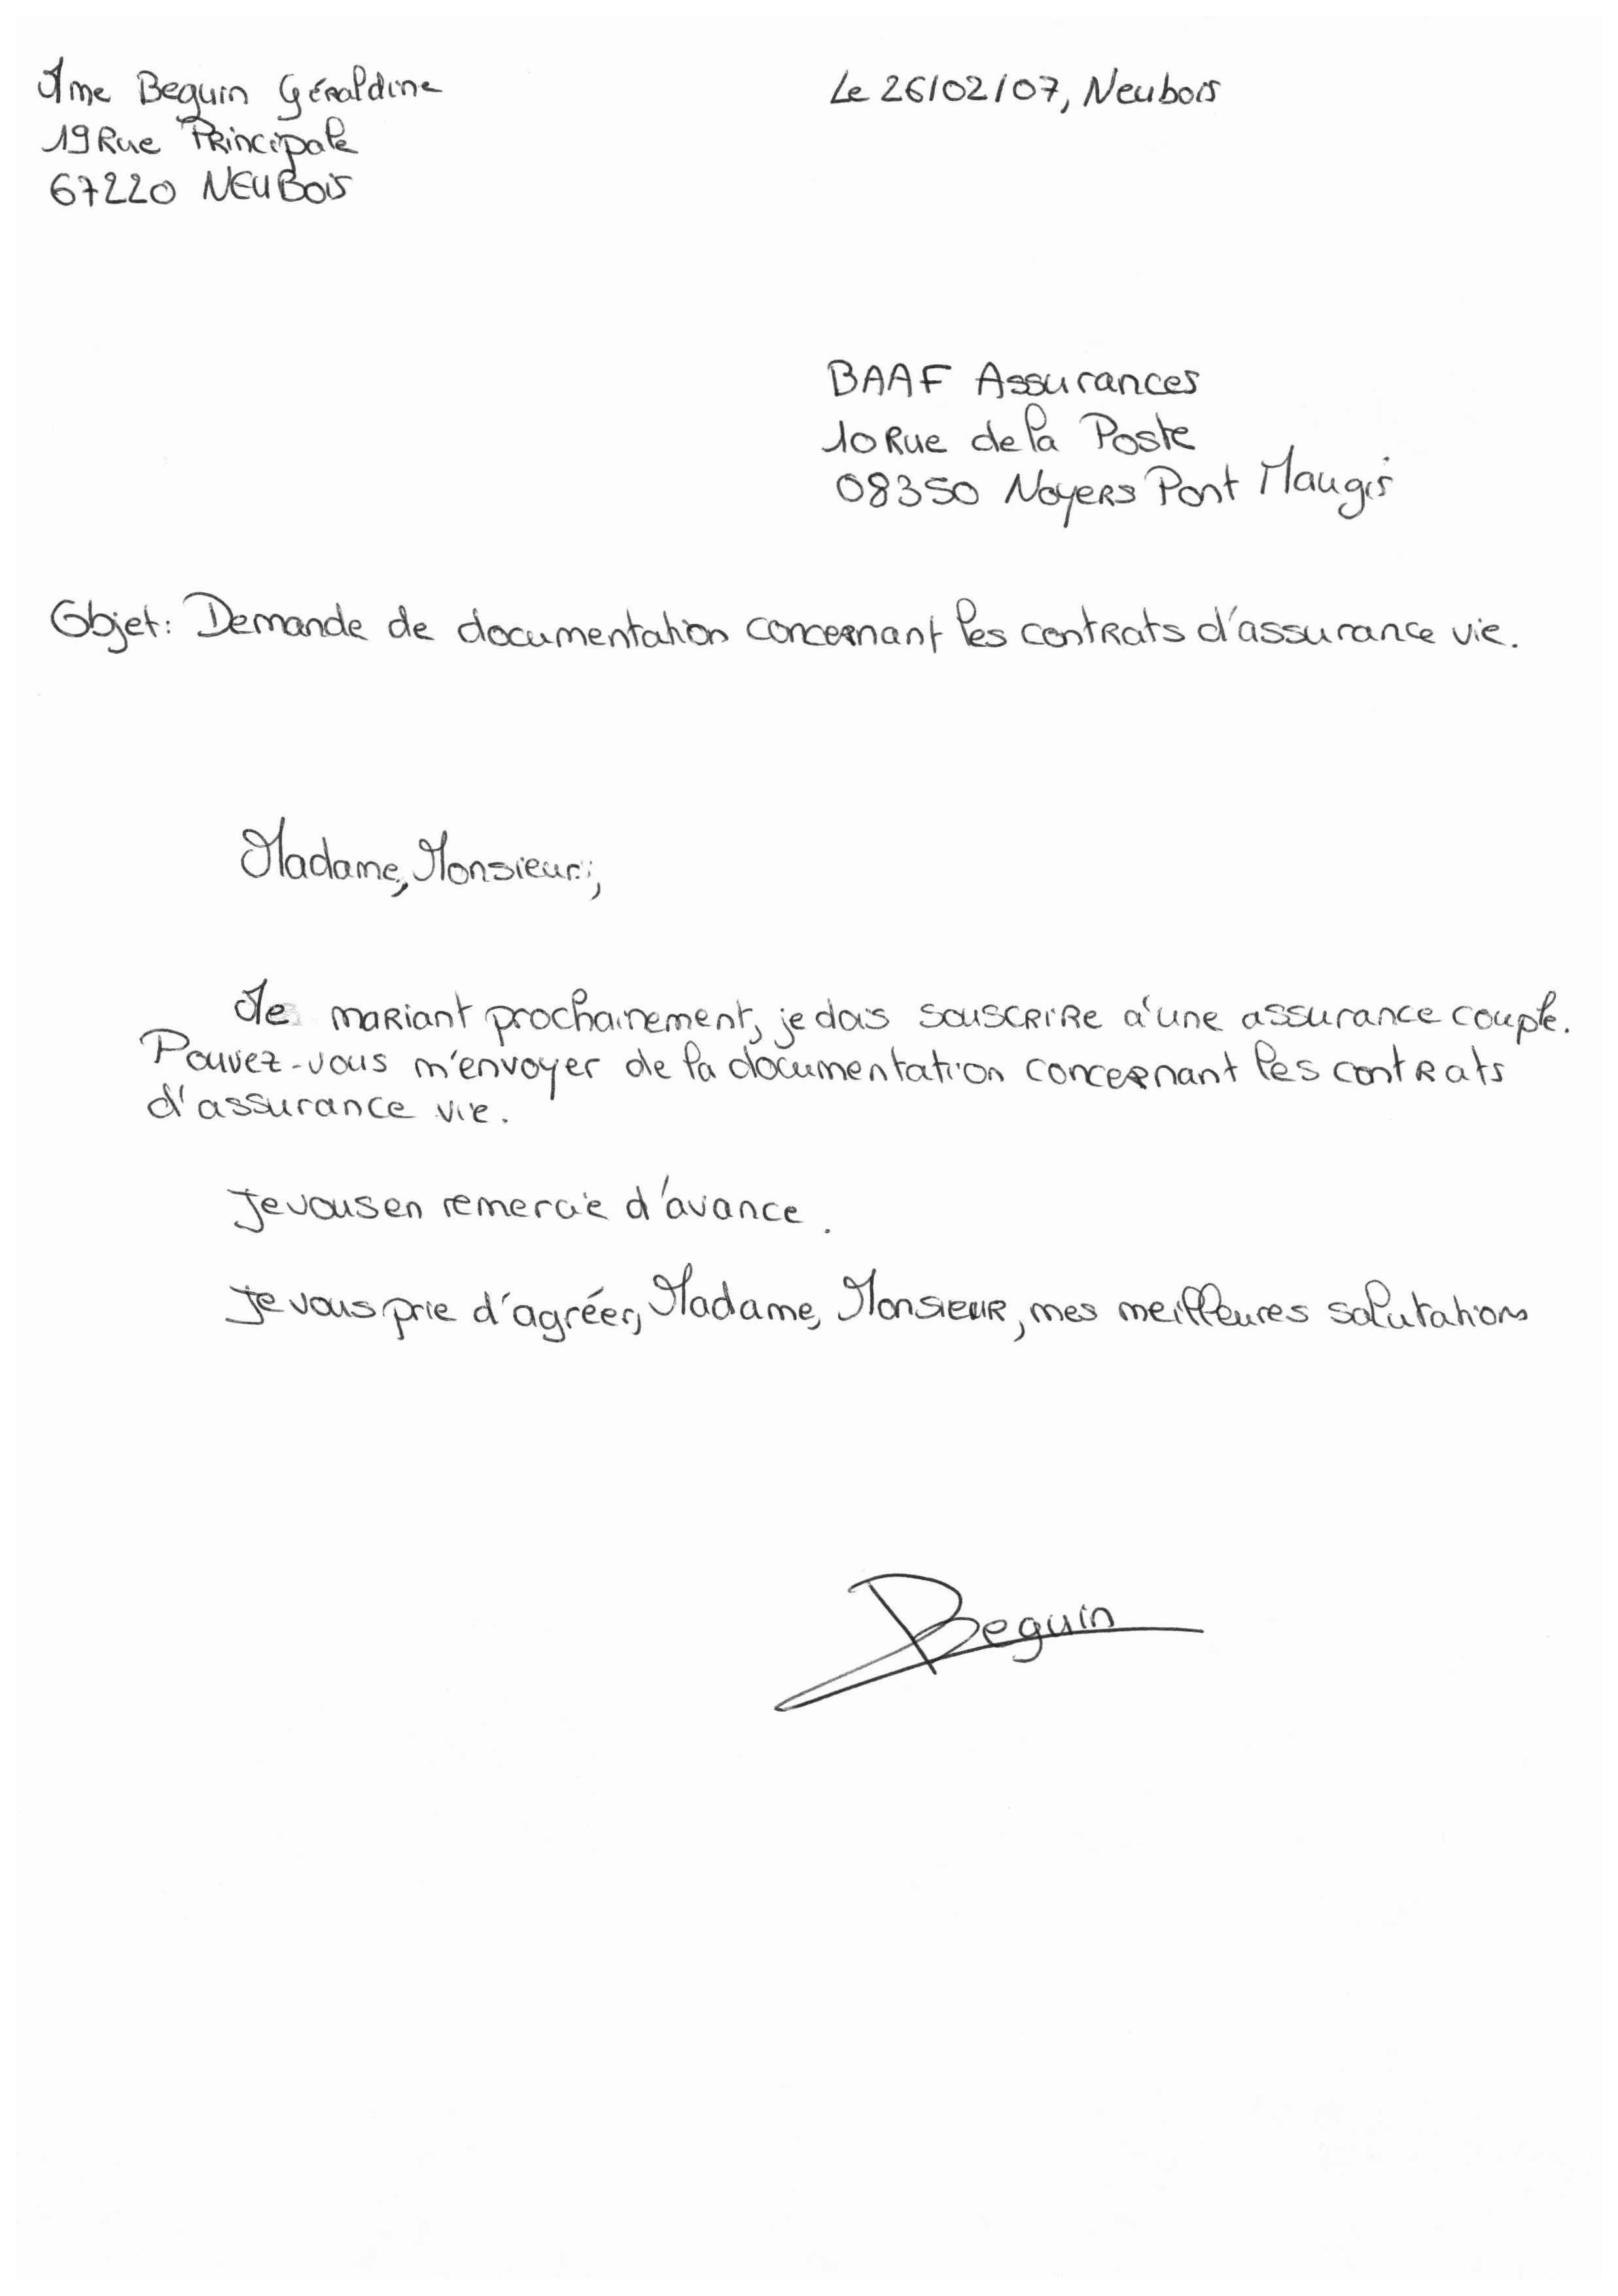 Mme Beguin Géraldine
Le 26/02/07, Neubois
19 Rue Principale
67220 NEUBois
BAAF Assurances
10 Rue de la Poste
08350 Noyers Pont Maugis
Objet: Demande de documentation concernant les contrats d'assurance vie.
Madame, Monsieur,
Me mariant prochainement, je dois souscrire à une assurance couple.
Pouvez-vous m'envoyer de la documentation concernant les contrats
d'assurance vie.
Je vous en remercie d'avance.
Je vous prie d'agréer, Madame, Monsieur, mes meilleures salutations
Beguin